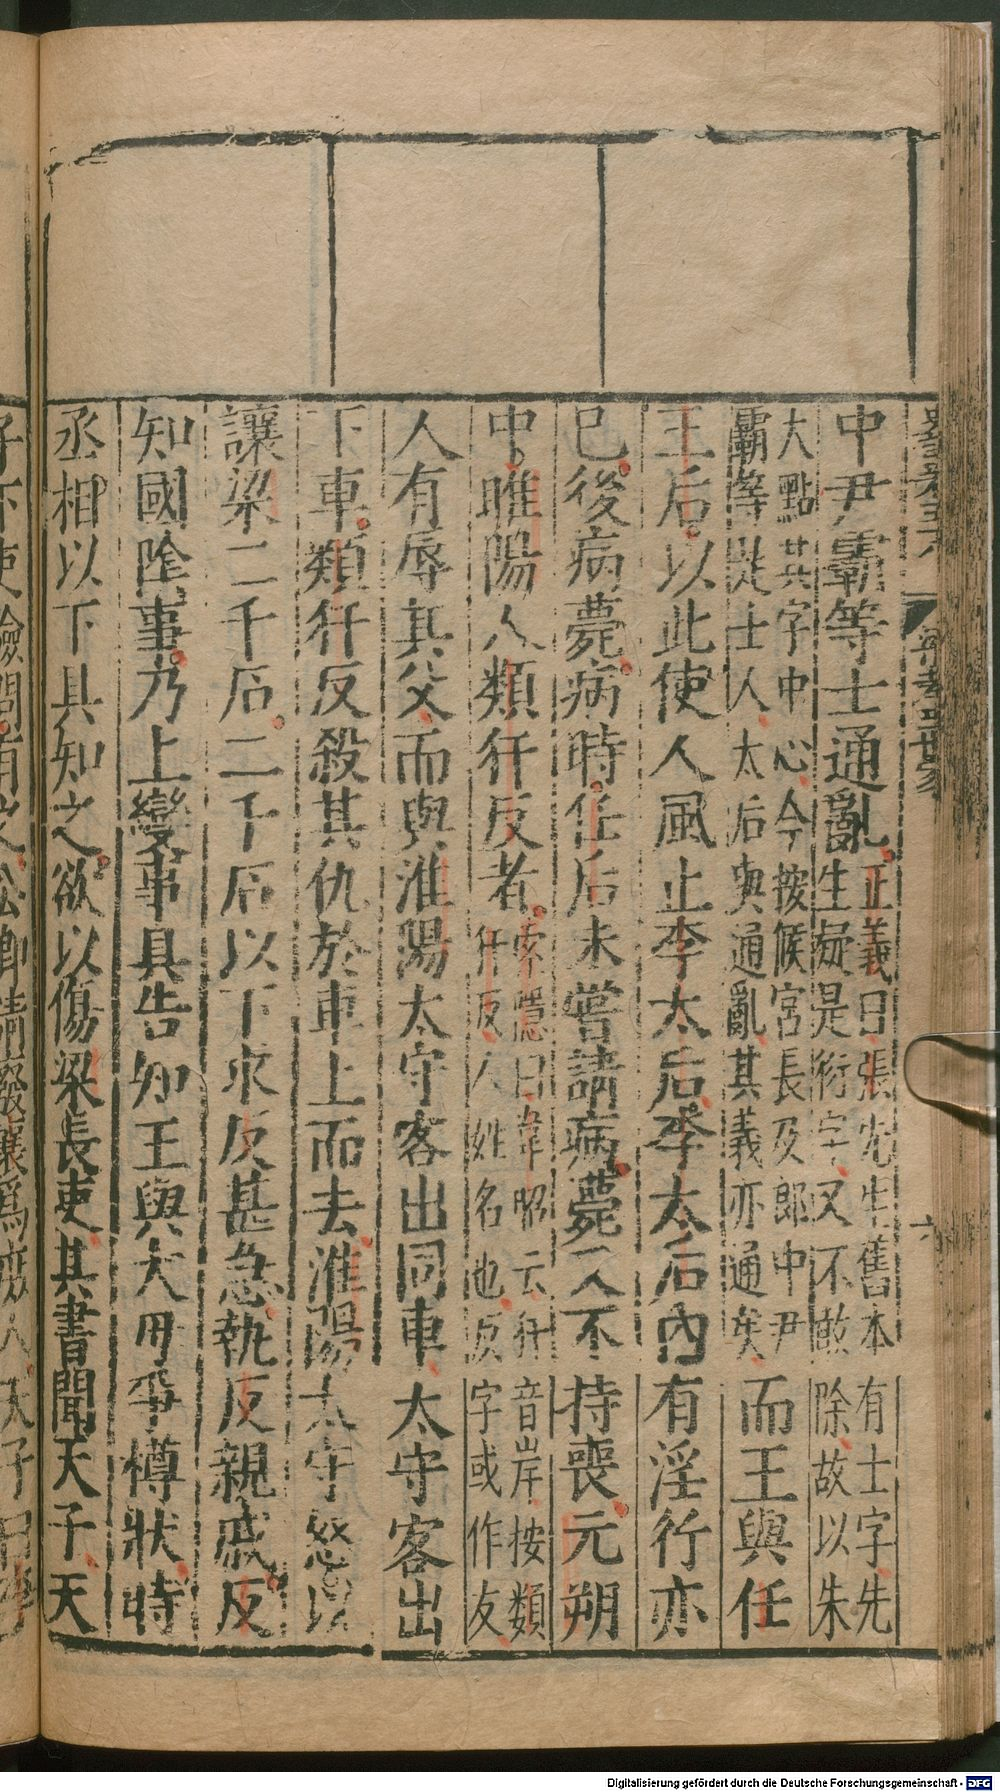 中尹霸等士通亂正義曰張先生舊本有士字先
生疑是衍字又不敢除故以朱
大點其字中心今按候宮長及郎中尹
霸等是士人太后與通亂其義亦通矣而王與任
王后以此使人風止李太后李太后內有淫行亦
已後病薨病時任后未嘗請病薨又不持喪元朔
中睢陽人類犴反者索隱曰韋昭云犴音岸按類
犴反人姓名也反字或作友
人有辱其父而與淮陽太守客出同車太守客出
下車類犴反殺其仇於車上而去淮陽太守怒以
讓梁二千石二千石以下求反甚急執反親戚反
知國陰事乃上變事具告知王與大母爭樽狀時
丞相以下具知之欲以傷梁長吏其書聞天子天
Digitalisierung gefördert durch die Deutsche Forschungsgemeinschaft - DFG